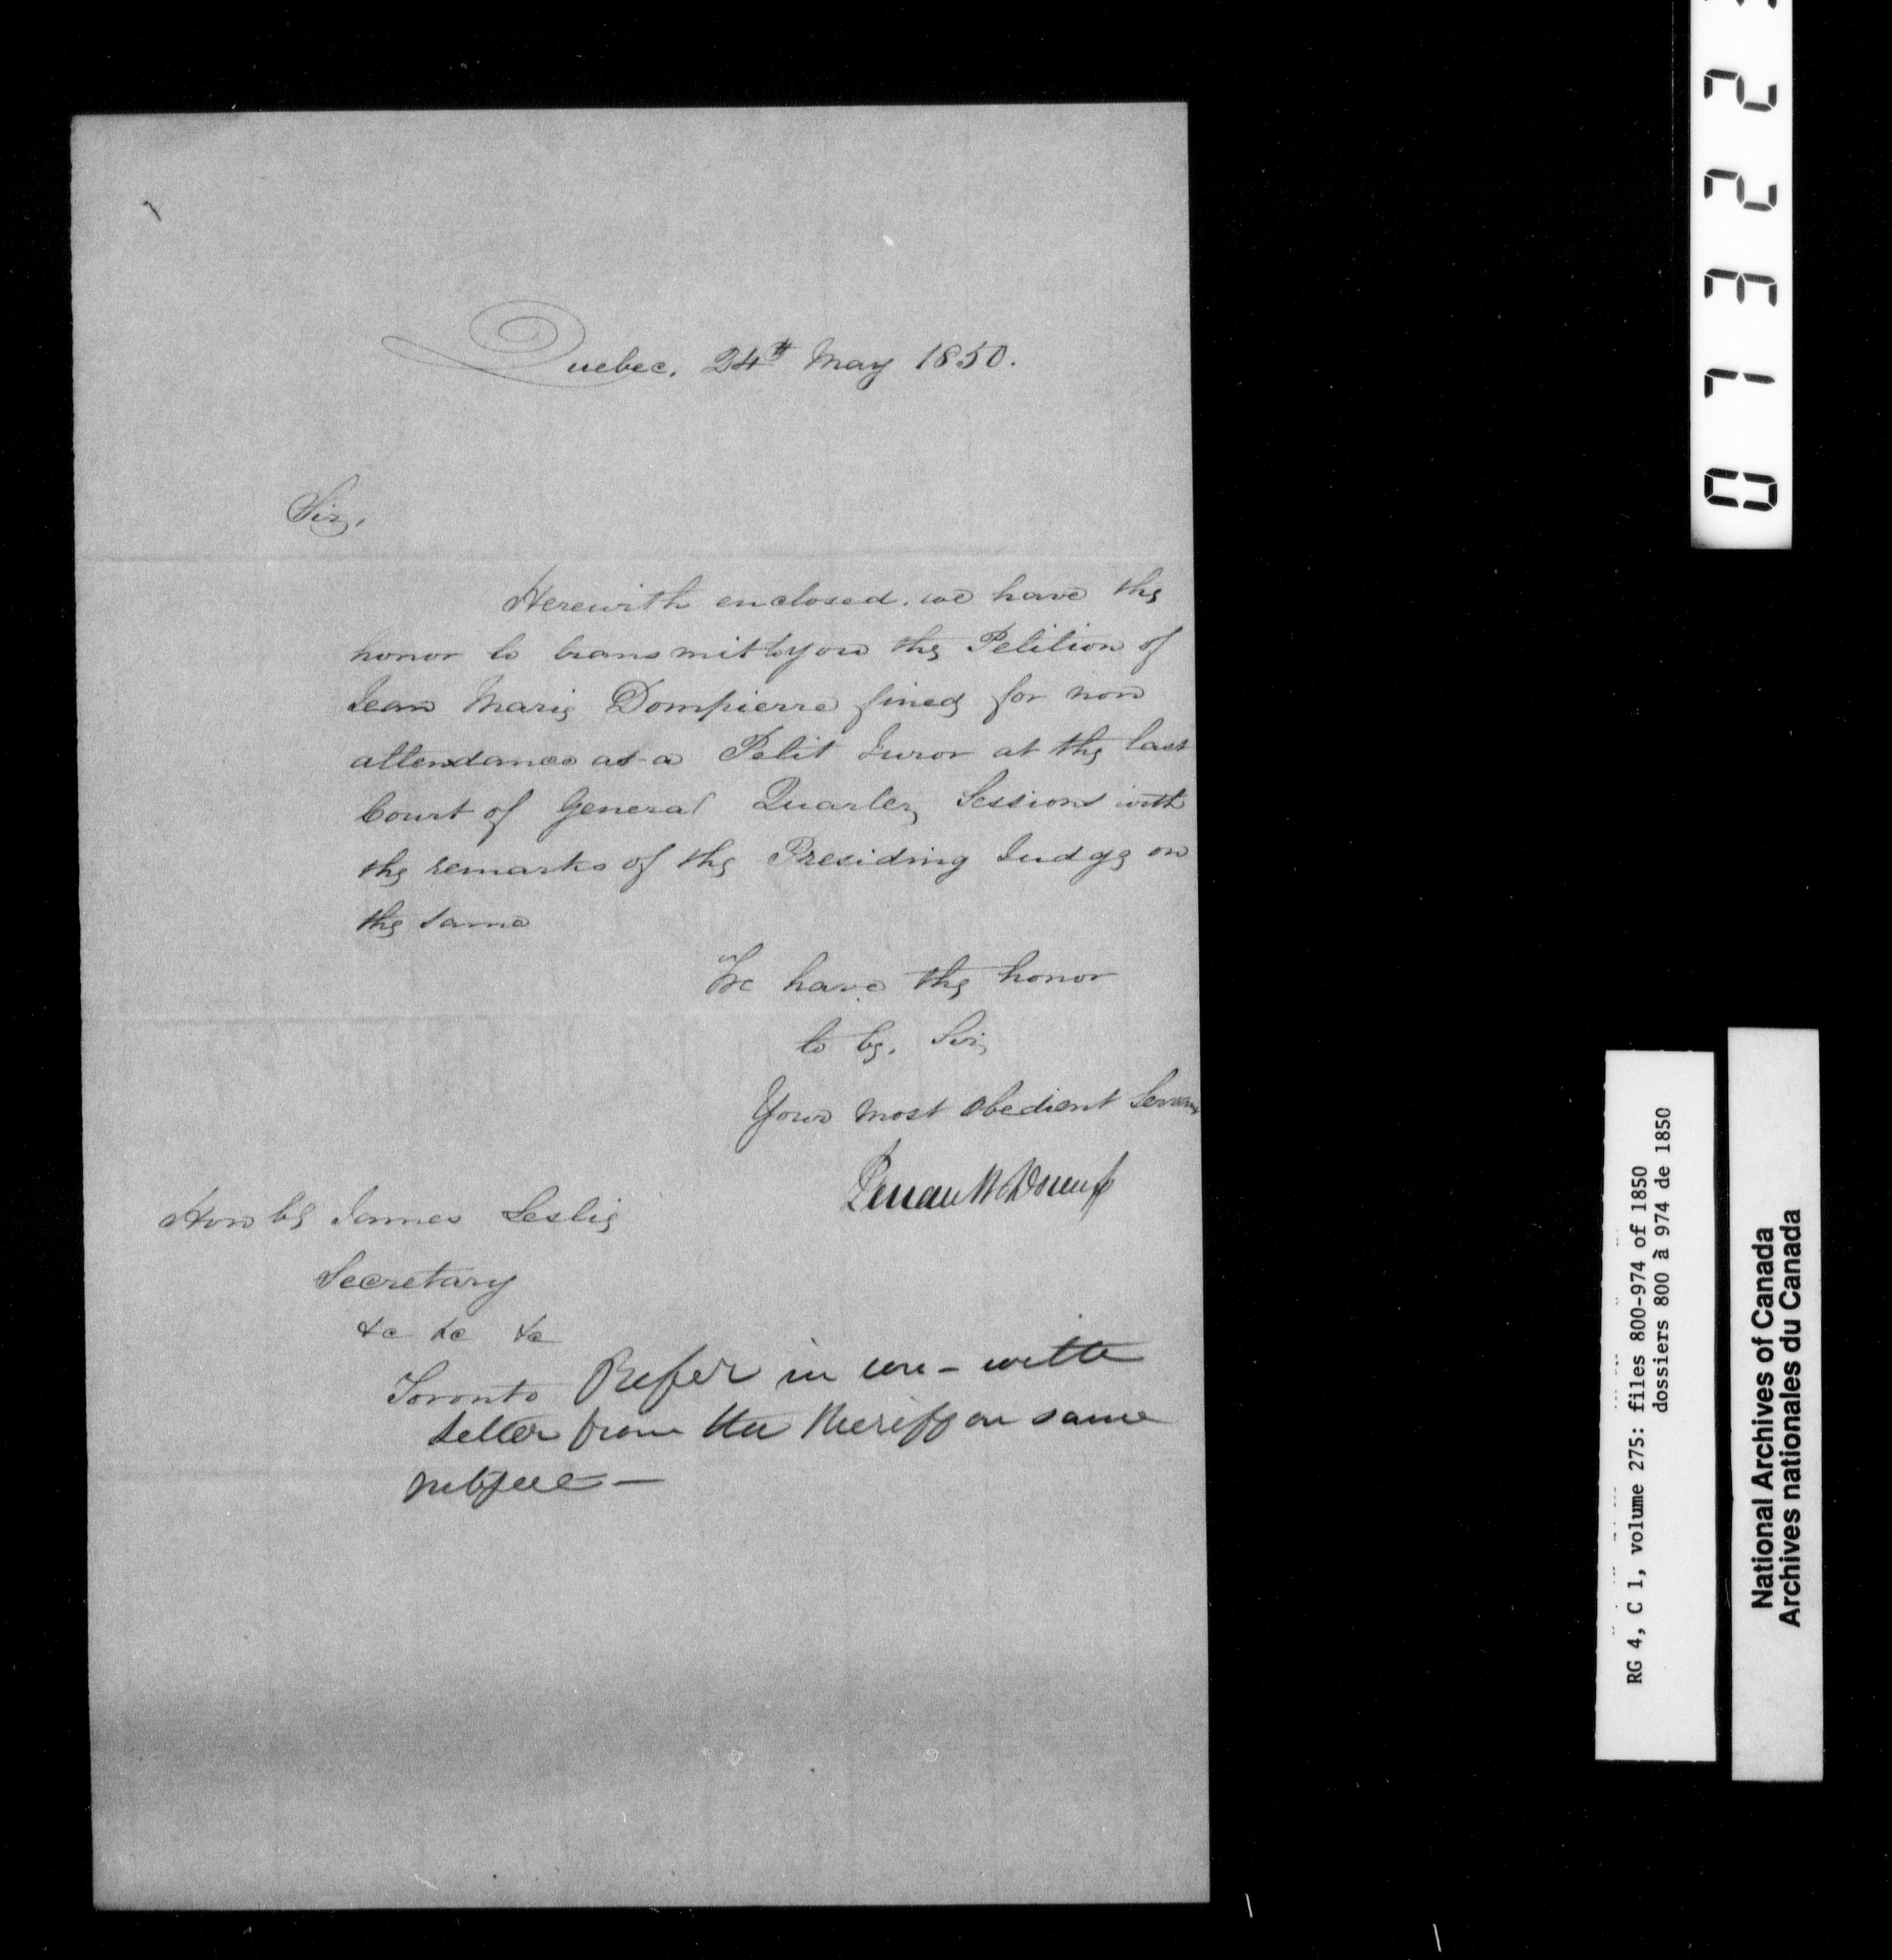 Quebec, 24th May 1850.
Sir,
Herewith enclosed, we have the
honor to transmit to you the Petition of
Jean Marie Dompierre fined for non
attendance as a Petit Juror at the last
Court of General Quarter Sessions with
the remarks of the Presiding Judge on
the same
We have the honor
to be, Sir,
Your most obedient Servants
Honble James Leslie
Secretary
&c &c &c
Toronto
Refer in con – with
letter from the Sheriff on same
subject –
07322
RG 4, C 1, volume 275: files 800-974 of 1850
dossiers 800 à 974 de 1850
National Archives of Canada
Archives nationales du Canada